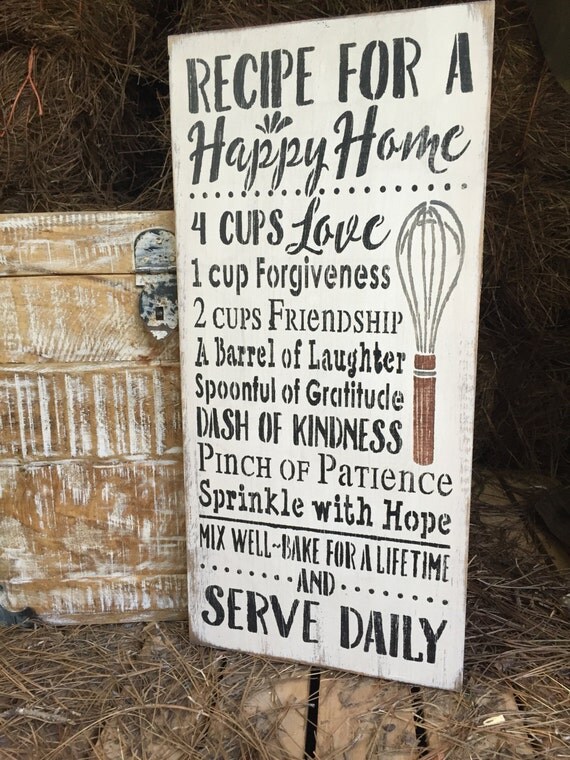 RECIPE FOR A
Happy Home
4 CUPS Love
1 cup Forgiveness
2 CUPS FRIENDSHIP
A Barrel of Laughter
Spoonful of Gratitude
DASH OF KINDNESS
PINCH OF PATIENCE
Sprinkle with Hope
MIX WELL~BAKE FOR A LIFETIME
AND
SERVE DAILY